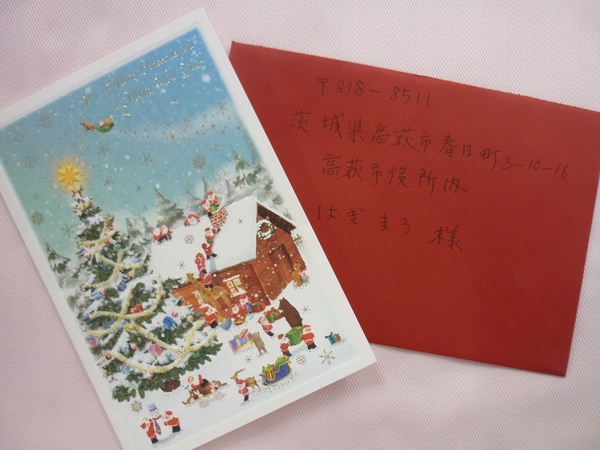 Merry Christmas and
a Happy New Year
〒318-8511
茨城県高萩市春日町3-10-16
高萩市役所内
はぎまろ 様